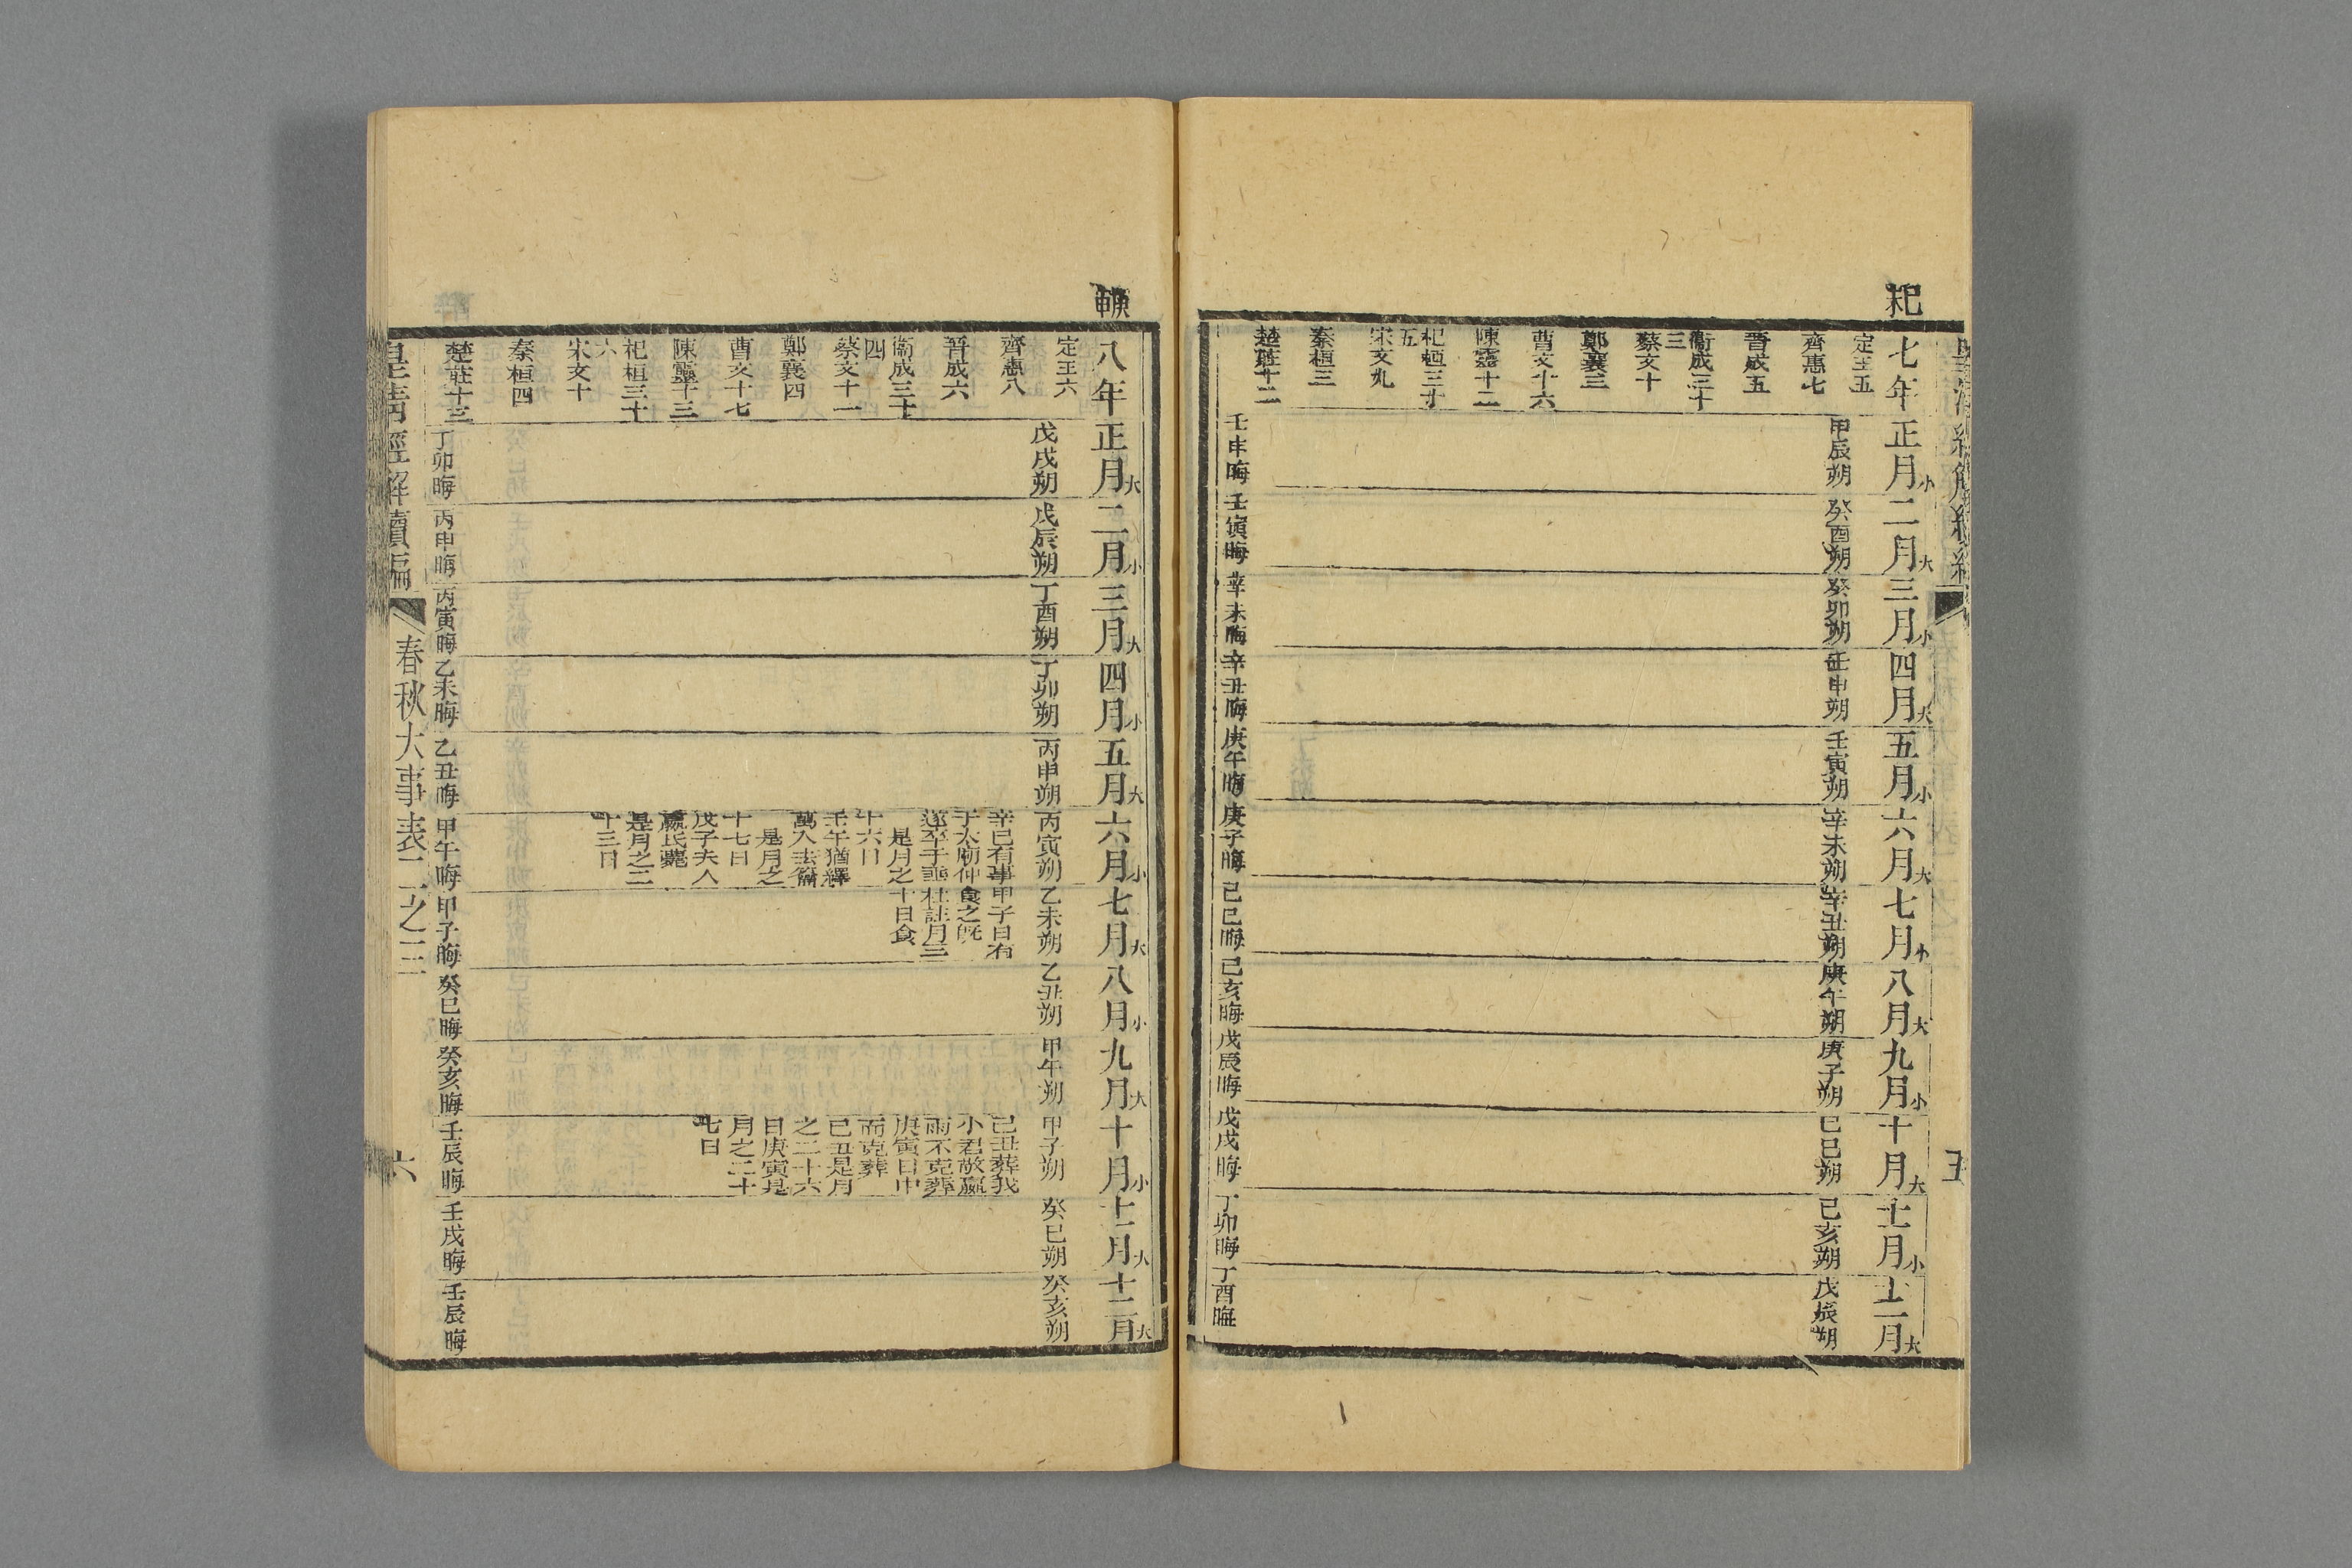 皇清經解續編
五
七年
正月小
二月大
三月小
四月大
五月小
六月大
七月小
八月大
九月小
十月大
十一月小
十二月大
定王五
齊惠七
晉成五
衞成三十
三
蔡文十
鄭襄三
曹文十六
陳靈十二
杞桓三十
五
宋文九
秦桓三
楚莊十二
甲辰朔
癸酉朔
癸卯朔
壬申朔
壬寅朔
辛未朔
辛丑朔
庚午朔
庚子朔
己巳朔
己亥朔
戊辰朔
壬申晦
壬寅晦
辛未晦
辛丑晦
庚午晦
庚子晦
己巳晦
己亥晦
戊辰晦
戊戌晦
丁卯晦
丁酉晦
八年
正月大
二月小
三月大
四月小
五月大
六月小
七月大
八月小
九月大
十月小
十一月大
十二月大
定王六
齊惠八
晉成六
衞成三十
四
蔡文十一
鄭襄四
曹文十七
陳靈十三
杞桓三十
六
宋文十
秦桓四
楚莊十三
戊戌朔
戊辰朔
丁酉朔
丁卯朔
丙申朔
丙寅朔
乙未朔
乙丑朔
甲午朔
甲子朔
癸巳朔
癸亥朔
辛巳有事
于太廟仲
遂卒于垂
是月之
十六日
壬午猶繹
萬入去籥
是月之
十七日
戊子夫人
嬴氏薨
是月之二
十三日
甲子日有
食之旣
杜註月三
十日食
己丑葬我
小君敬嬴
雨不克葬
庚寅日中
而克葬
己丑是月
之二十六
日庚寅是
月之二十
七日
丁卯晦
丙申晦
丙寅晦
乙未晦
乙丑晦
甲午晦
甲子晦
癸巳晦
癸亥晦
壬辰晦
壬戌晦
壬辰晦
皇清經解續編
春秋大事表二之三
六